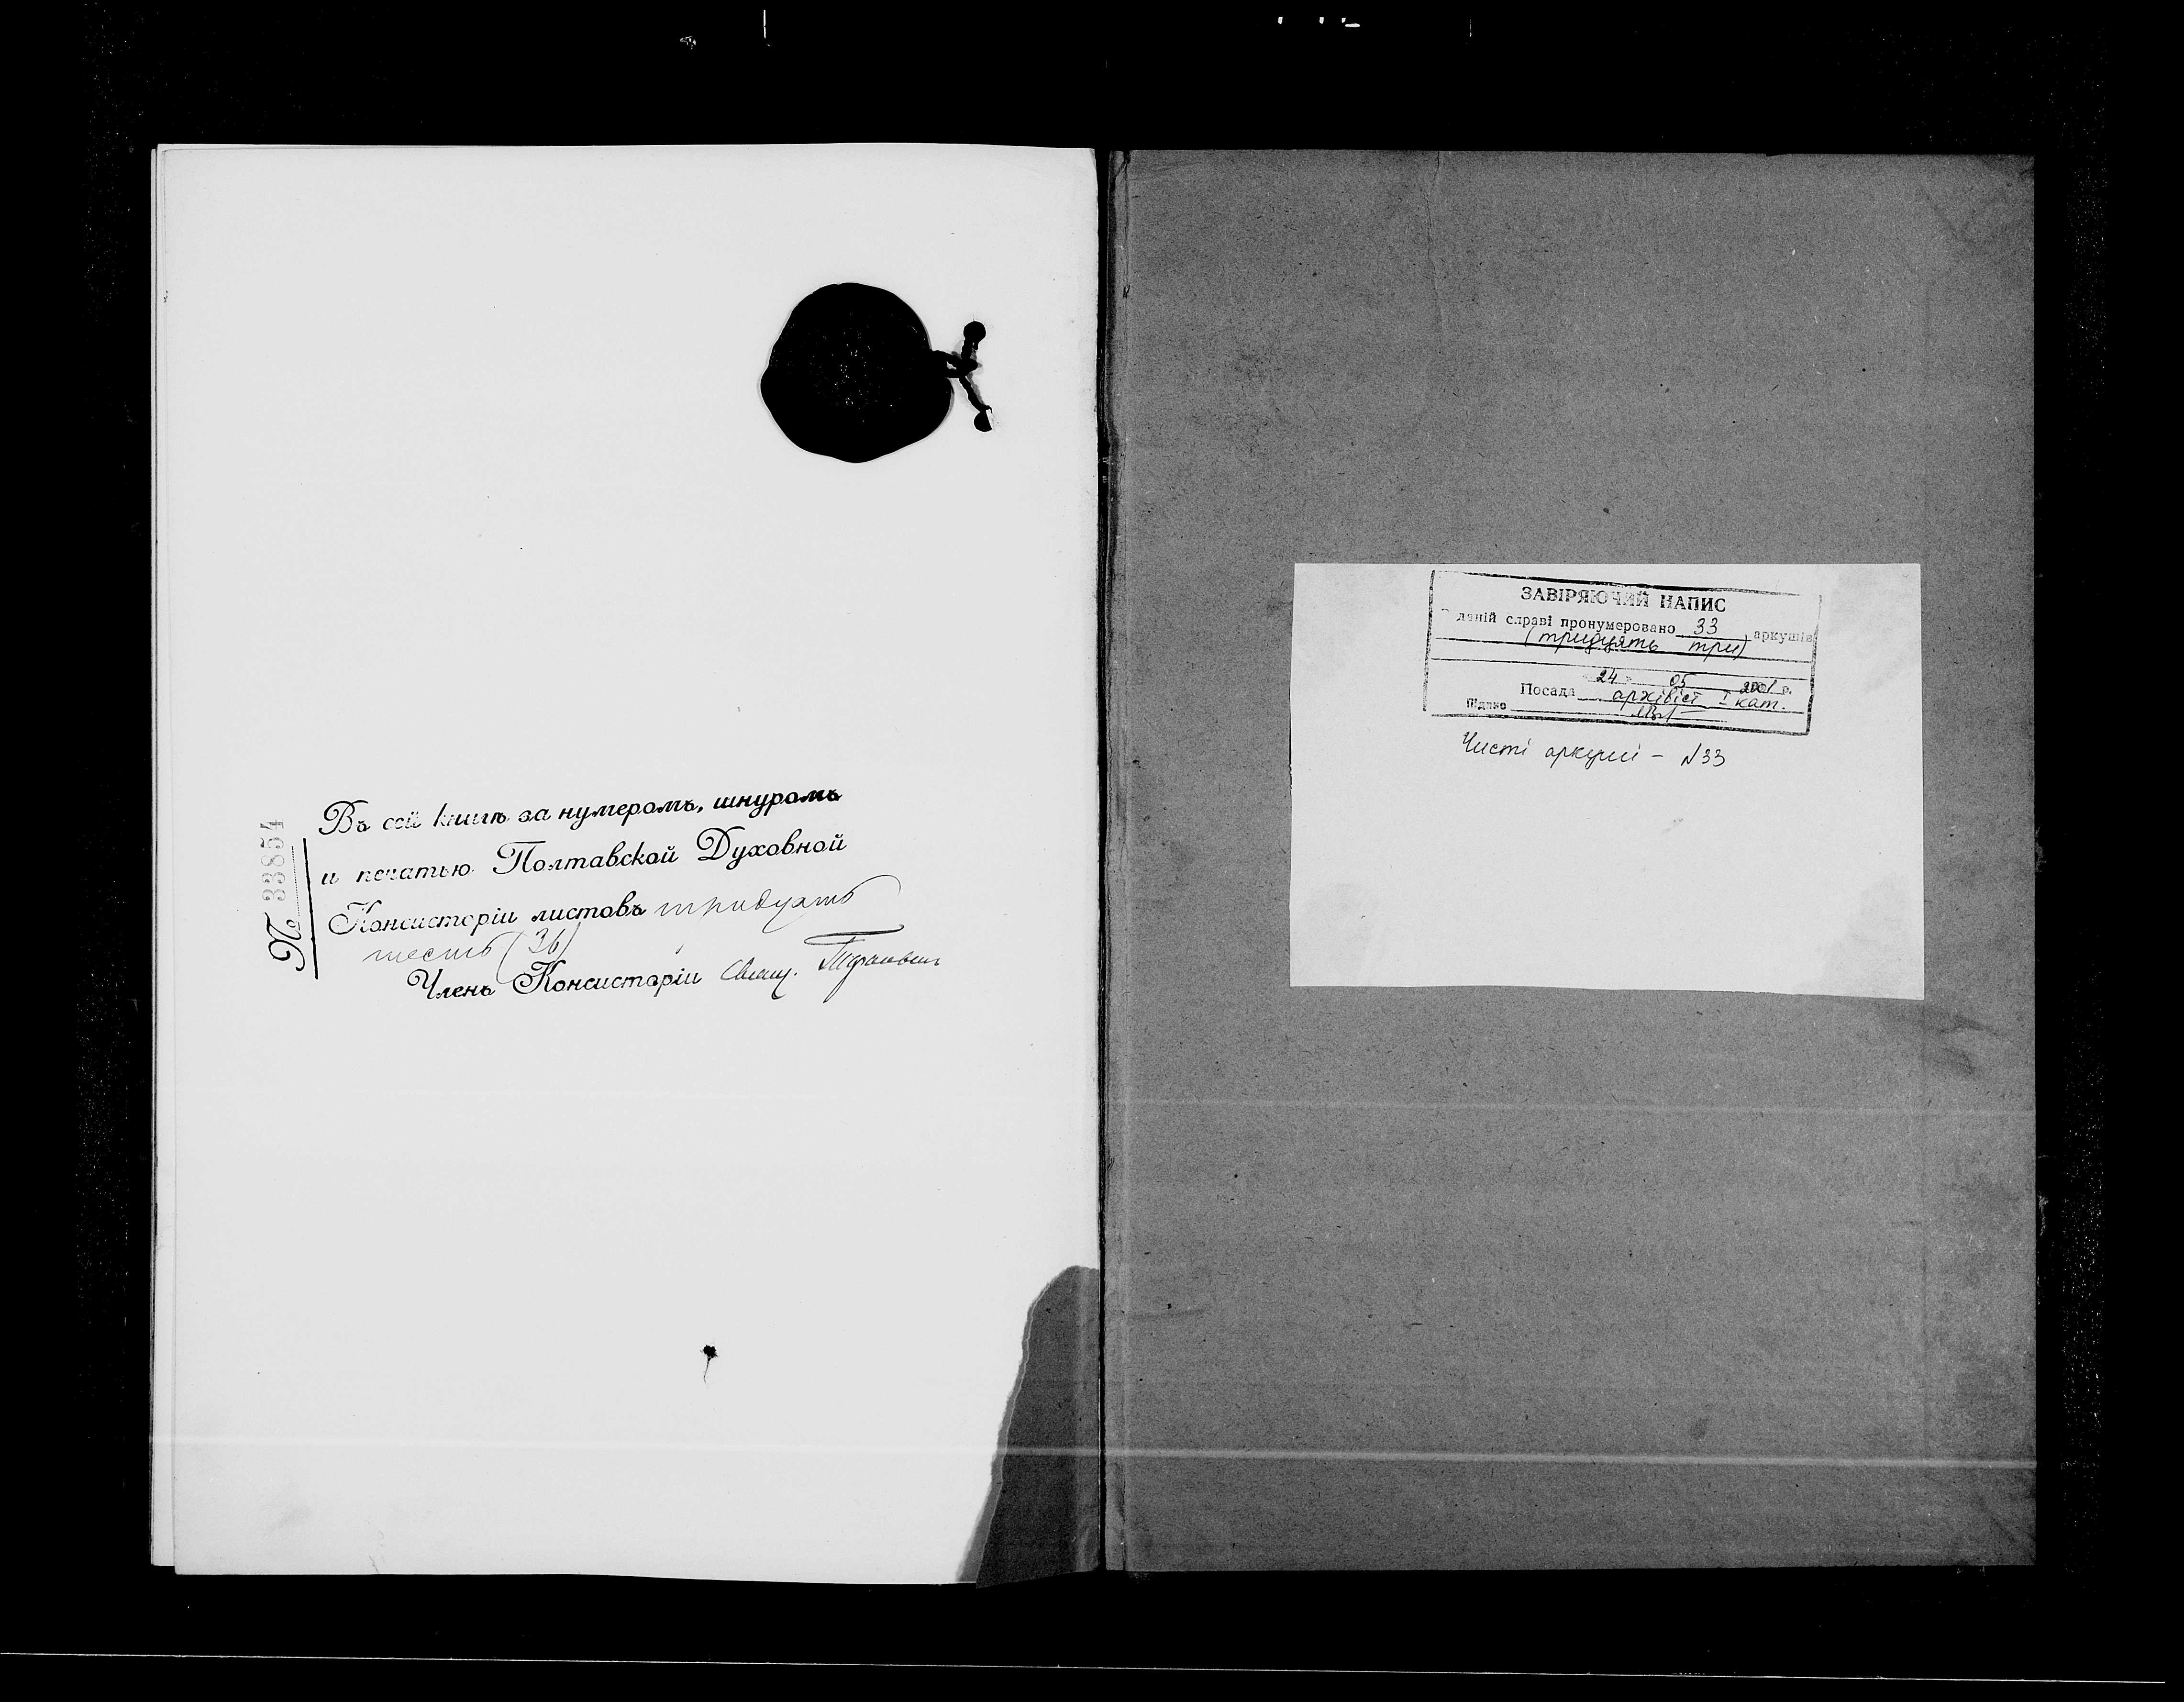 № 33854
Въ сей книгѣ за нумеромъ, шнуромъ
и печатью Полтавской Духовной
Консисторіи листовъ тридцать
шесть (36)
Членъ Консисторіи Свящ.
ЗАВІРЯЮЧИЙ НАПИС
даній справі пронумеровано 33 аркушів
(тридцять три)
"24" 05 2001 р.
Посада архівіст I кат.
Підпис
Чисті аркуші - N33